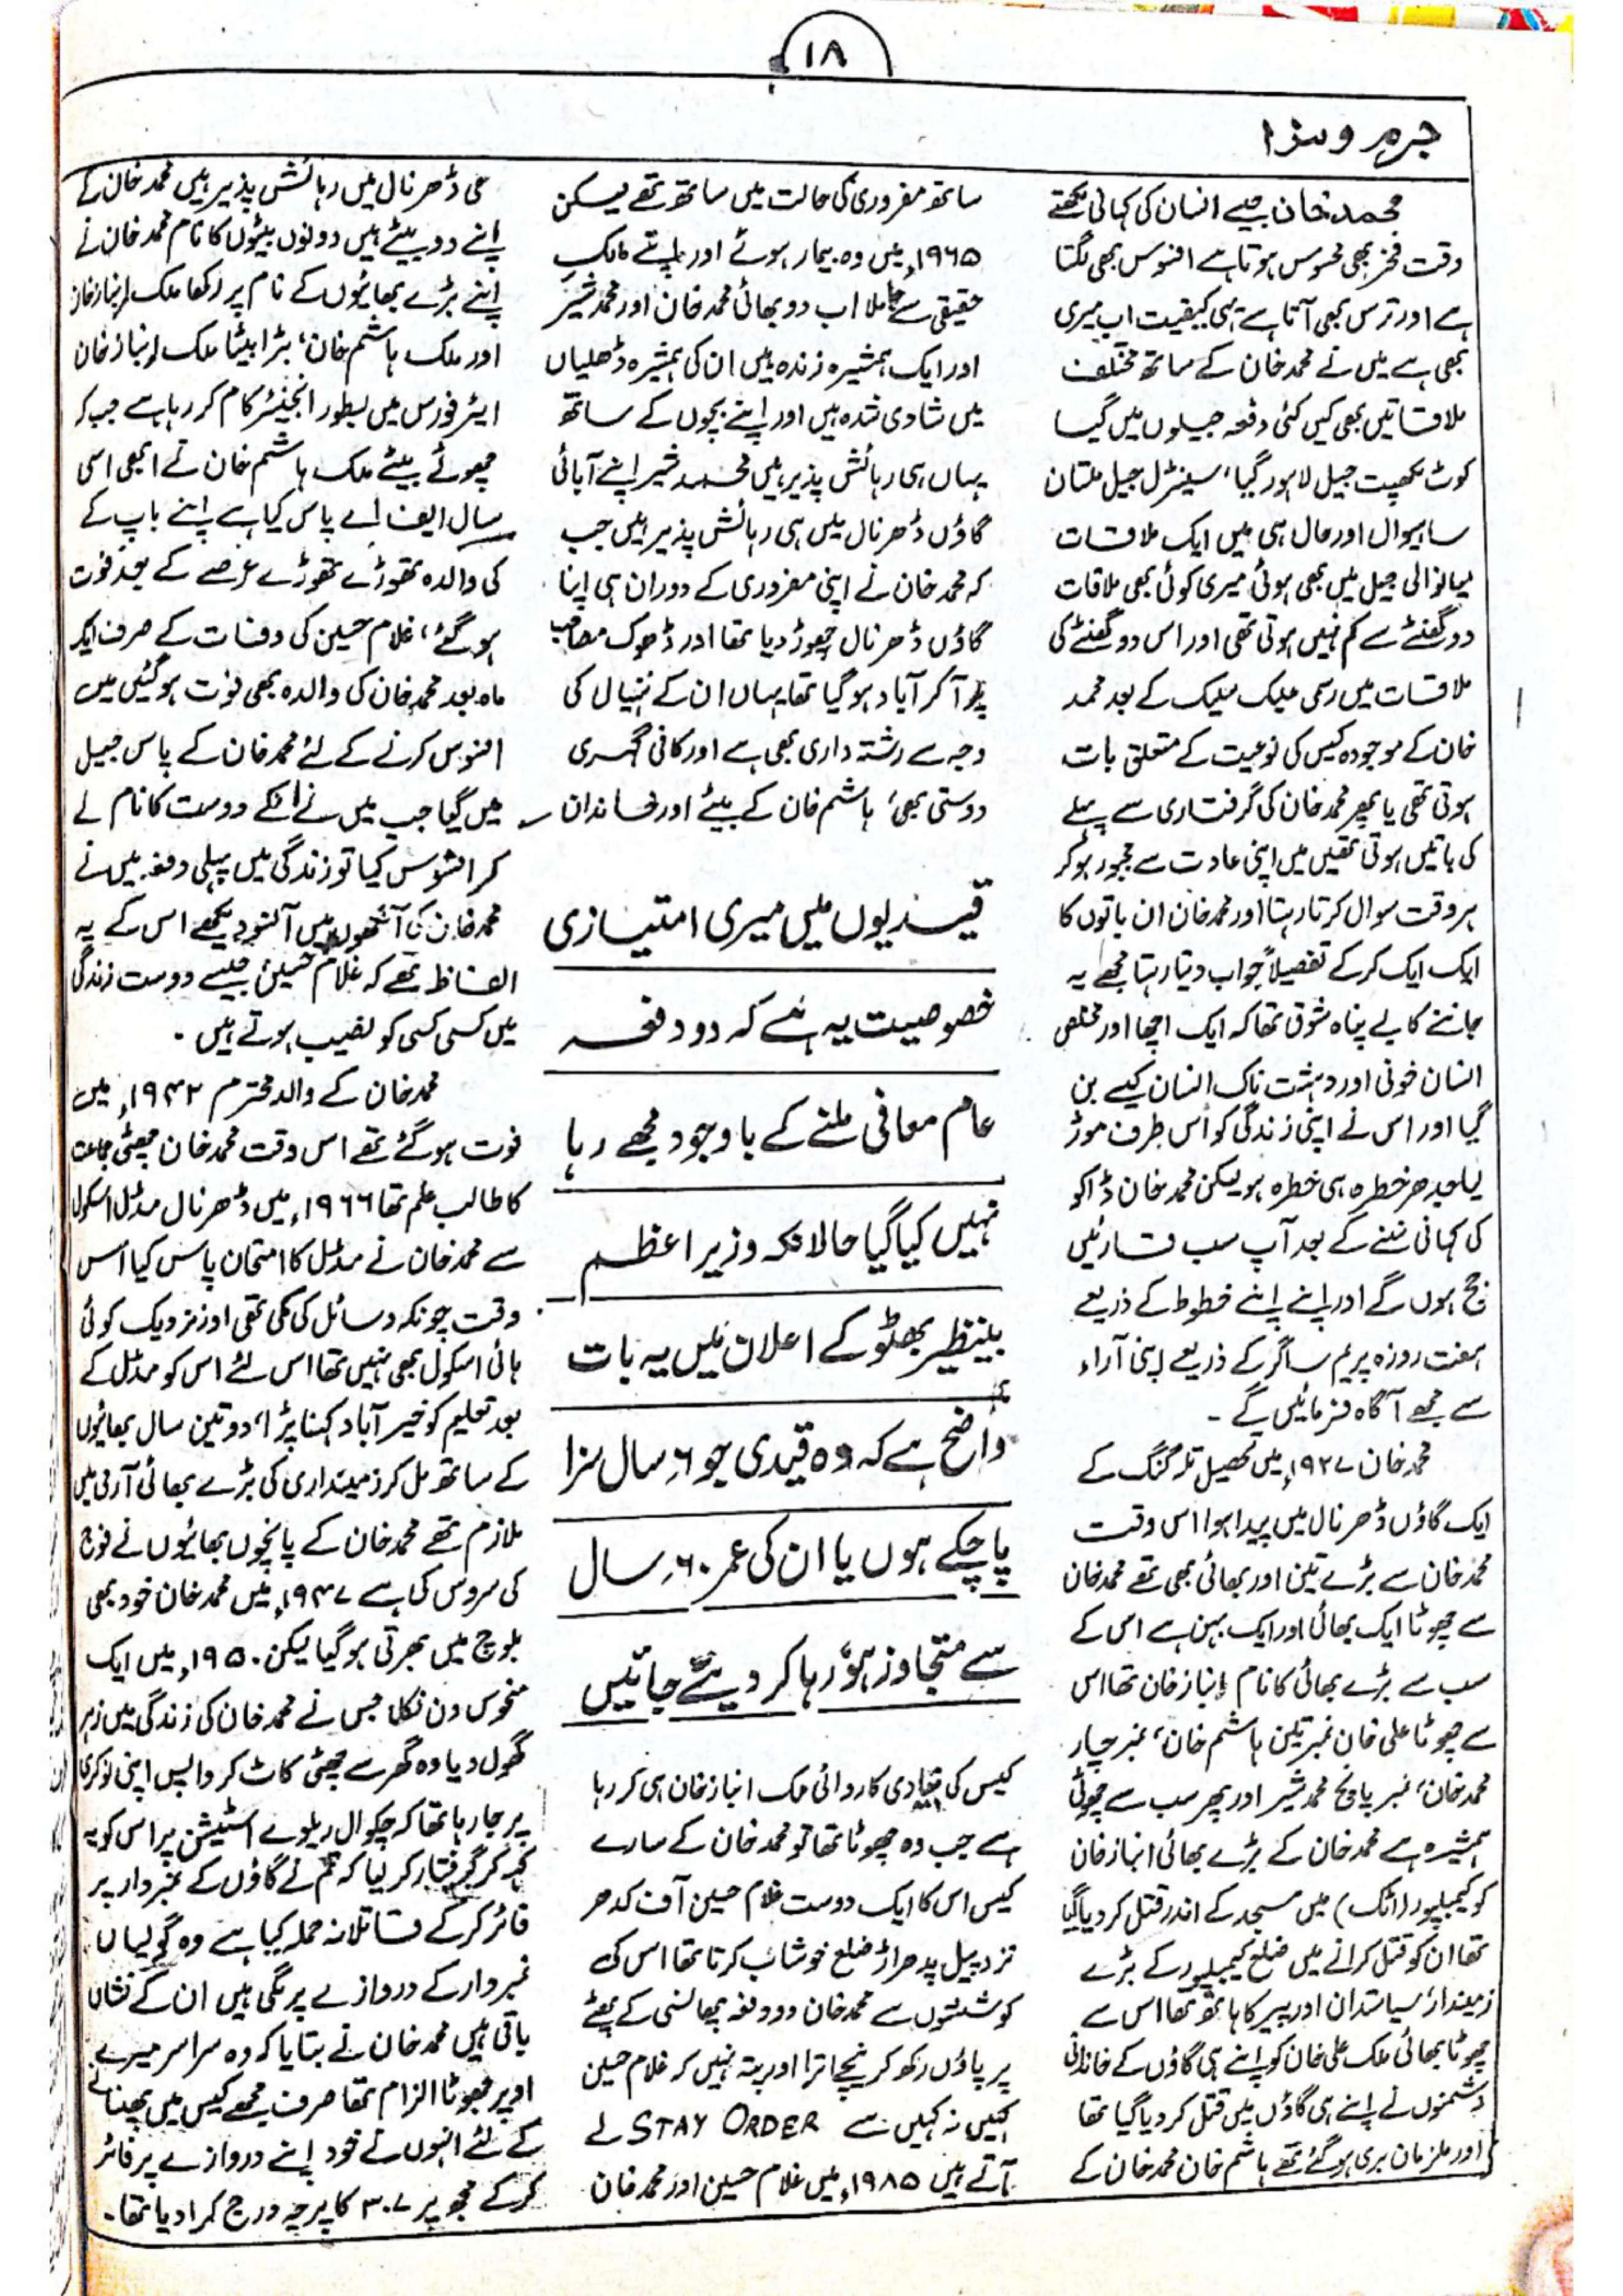 ۱۸
جرم و سزا
محمد خان جیسے انسان کی کہانی لکھتے
وقت فخر بھی محسوس ہوتا ہے افسوس بھی لگتا
ہے اور ترس بھی آتا ہے یہی کیفیت اب میری
بھی ہے میں نے محمد خان کے ساتھ مختلف
ملاقاتیں بھی کیں کئی دفعہ جیلوں میں گیا
کوٹ لکھپت جیل لاہور گیا، سینٹرل جیل ملتان
ساہیوال اور حال ہی میں ایک ملاقات
میانوالی جیل میں بھی ہوئی میری کوئی بھی ملاقات
دو گھنٹے سے کم نہیں ہوتی تھی اور اس دو گھنٹے کی
ملاقات میں رسمی علیک سلیک کے بعد محمد
خان کے موجودہ کیس کی نوعیت کے متعلق بات
ہوتی تھی یا پھر محمد خان کی گرفتاری سے پہلے
کی باتیں ہوتی تھیں میں اپنی عادت سے مجبور ہو کر
ہر وقت سوال کرتا رہتا اور محمد خان ان باتوں کا
ایک ایک کر کے تفصیلاً جواب دیتا رہتا مجھے یہ
جاننے کا بے پناہ شوق تھا کہ ایک اچھا اور مخلص
انسان خونی اور دہشت ناک انسان کیسے بن
گیا اور اس نے اپنی زندگی کو اُس طرف موڑ
لیا جدھر خطرہ ہی خطرہ ہو لیکن محمد خان ڈاکو
کی کہانی سننے کے بعد آپ سب قارئین
جج ہوں گے اور اپنے اپنے خطوط کے ذریعے
ہفت روزہ پریم ساگر کے ذریعے اپنی آراء
سے مجھے آگاہ فرمائیں گے -
محمد خان ۱۹۲۷ء میں تحصیل تلہ گنگ کے
ایک گاؤں ڈھرنال میں پیدا ہوا اس وقت
محمد خان سے بڑے تین اور بھائی بھی تھے محمد خان
سے چھوٹا ایک بھائی اور ایک بہن ہے اس کے
سب سے بڑے بھائی کا نام انباز خان تھا اس
سے چھوٹا علی خان نمبر تین ہاشم خان، نمبر چار
محمد خان، نمبر پانچ محمد شیر اور پھر سب سے چھوٹی
ہمشیرہ ہے محمد خان کے بڑے بھائی انباز خان
کو کیمبلپور (اٹک) میں مسجد کے اندر قتل کر دیا گیا
تھا ان کو قتل کرانے میں ضلع کیمبلپور کے بڑے
زمیندار، سیاستدان اور پیر کا ہاتھ تھا اس سے
چھوٹا بھائی ملک علی خان کو اپنے ہی گاؤں کے خاندانی
دشمنوں نے اپنے ہی گاؤں میں قتل کر دیا گیا تھا
اور ملزمان بری ہو گئے تھے ہاشم خان محمد خان کے
ساتھ مفروری کی حالت میں ساتھ تھے لیکن
۱۹۶۵ء میں وہ بیمار ہوئے اور اپنے مالک
حقیقی سے جا ملا اب دو بھائی محمد خان اور محمد شیر
اور ایک ہمشیرہ زندہ ہیں ان کی ہمشیرہ ڈھلیاں
میں شادی شدہ ہیں اور اپنے بچوں کے ساتھ
یہاں ہی رہائش پذیر ہیں محمد شیر اپنے آبائی
گاؤں ڈھرنال میں ہی رہائش پذیر ہیں جب
کہ محمد خان نے اپنی مفروری کے دوران ہی اپنا
گاؤں ڈھرنال چھوڑ دیا تھا اور ڈھوک مصاحب
پر آ کر آباد ہو گیا تھا یہاں ان کے ننہیال کی
وجہ سے رشتہ داری بھی ہے اور کافی گہری
دوستی بھی، ہاشم خان کے بیٹے اور خاندان
قیدیوں میں میری امتیازی
خصوصیت یہ ہے کہ دو دفعہ
عام معافی ملنے کے باوجود مجھے رہا
نہیں کیا گیا حالانکہ وزیر اعظم
بینظیر بھٹو کے اعلان میں یہ بات
واضح ہے کہ وہ قیدی جو ۶ سال سزا
پا چکے ہوں یا ان کی عمر ۶۰ سال
سے متجاوز ہو رہا کر دیئے جائیں
کیس کی بنیادی کاروائی ملک انباز خان ہی کر رہا
ہے جب وہ چھوٹا تھا تو محمد خان کے سارے
کیس اس کا ایک دوست غلام حسین آف کدھر
نزد پیل پدھراڑ ضلع خوشاب کرتا تھا اس کی
کوششوں سے محمد خان دو دفعہ پھانسی کے پھٹے
پر پاؤں رکھ کر نیچے اترا اور پتہ نہیں کہ غلام حسین
کہیں نہ کہیں سے STAY ORDER لے
آتے ہیں ۱۹۸۵ء میں غلام حسین اور محمد خان
ہی ڈھرنال میں رہائش پذیر ہیں محمد خان کے
اپنے دو بیٹے ہیں دونوں بیٹوں کا نام محمد خان نے
اپنے بڑے بھائیوں کے نام پر رکھا ملک انباز خان
اور ملک ہاشم خان، بڑا بیٹا ملک انباز خان
ایئر فورس میں بطور انجینئر کام کر رہا ہے جب کہ
چھوٹے بیٹے ملک ہاشم خان نے ابھی اسی
سال ایف اے پاس کیا ہے اپنے باپ کے
کی والدہ تھوڑے تھوڑے عرصے کے بعد فوت
ہو گئے، غلام حسین کی وفات کے صرف ایک
ماہ بعد محمد خان کی والدہ بھی فوت ہو گئیں میں
افسوس کرنے کے لئے محمد خان کے پاس جیل
میں گیا جب میں نے انکے دوست کا نام لے
کر افسوس کیا تو زندگی میں پہلی دفعہ میں نے
محمد خان کی آنکھوں میں آنسو دیکھے اس کے یہ
الفاظ تھے کہ غلام حسین جیسے دوست زندگی
میں کسی کسی کو نصیب ہوتے ہیں -
محمد خان کے والد محترم ۱۹۴۲ء میں
فوت ہو گئے تھے اس وقت محمد خان چھٹی جماعت
کا طالب علم تھا ۱۹۶۶ء میں ڈھرنال مڈل اسکول
سے محمد خان نے مڈل کا امتحان پاس کیا اس
وقت چونکہ وسائل کی کمی تھی اور نزدیک کوئی
ہائی اسکول بھی نہیں تھا اس لئے اس کو مڈل کے
بعد تعلیم کو خیر آباد کہنا پڑا، دو تین سال بھائیوں
کے ساتھ مل کر زمینداری کی بڑے بھائی آرمی میں
ملازم تھے محمد خان کے پانچوں بھائیوں نے فوج
کی سروس کی ہے ۱۹۴۷ء میں محمد خان خود بھی
بلوچ میں بھرتی ہو گیا لیکن ۱۹۵۰ء میں ایک
منحوس دن نکلا جس نے محمد خان کی زندگی میں زہر
گھول دیا وہ گھر سے چھٹی کاٹ کر واپس اپنی نوکری
پر جا رہا تھا کہ چکوال ریلوے اسٹیشن پر اس کو یہ
کہہ کر گرفتار کر لیا کہ تم نے گاؤں کے نمبردار پر
فائر کر کے قاتلانہ حملہ کیا ہے وہ گولیاں
نمبردار کے دروازے پر لگی ہیں ان کے نشان
باقی ہیں محمد خان نے بتایا کہ وہ سراسر میرے
اوپر جھوٹا الزام تھا صرف مجھے کیس میں پھنسانے
کے لئے انہوں نے خود اپنے دروازے پر فائر
کر کے مجھ پر ۳۰۷ کا پرچہ درج کرا دیا تھا -